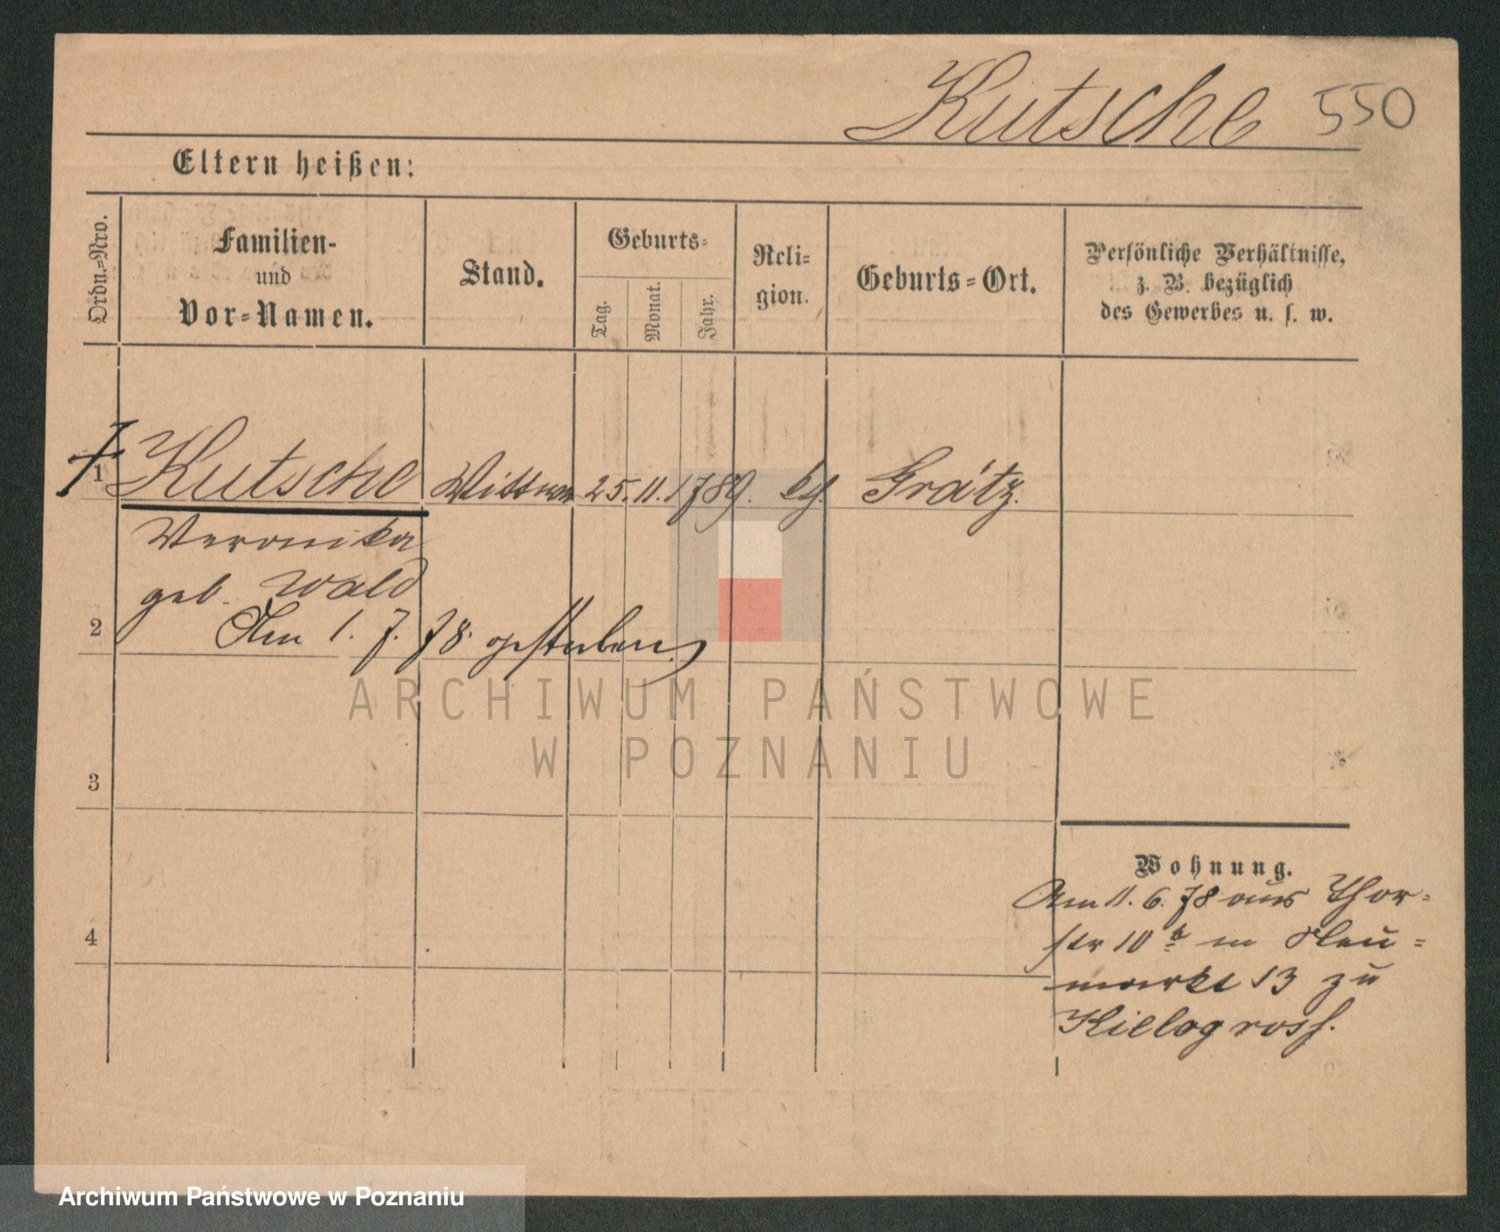 Kutsche 550
Eltern heißen:
Ordn.-Nro.
Familien-
und
Vor-Namen.
Stand.
Geburts-
Tag.
Monat.
Jahr.
Reli-
gion.
Geburts-Ort.
Persönliche Verhältnisse,
z. B. bezüglich
des Gewerbes u. s. w.
1 Kutsche Wittwe 25. 11. 1789. kth. Grätz.
Veronika
geb. Wald
2 Am 1. 7. 78. gestorben
ARCHIWUM PAŃSTWOWE
W POZNANIU
3
4
Wohnung.
Am 11. 6. 78 aus Thor-
str 10 b in Neu-
markt 13 zu
Archiwum Państwowe w Poznaniu